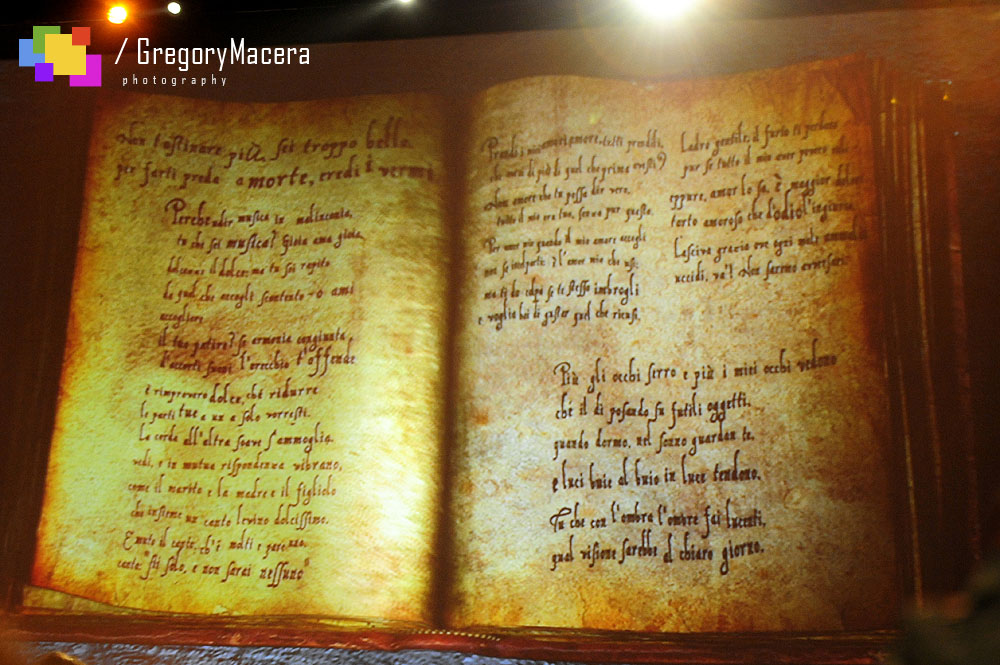 / GregoryMacera
photography
Non t'ostinare più, sei troppo bello,
per farti preda a morte, eredi i vermi
Perche udir musica in malinconia,
tu che sei musica? Gioia ama gioia,
dolcezza il dolce: ma tu sei rapito
da quel che accogli scontento o ami
accogliere
il tuo patire? Se armonia congiunta
d'accorti suoni l'orecchio t'offende
è rimprovero dolce, chè ridurre
le parti tue a un a solo vorresti.
La corda all'altra soave s'ammoglia
vedi, e in mutua rispondenza vibrano,
come il marito e la madre e il figliolo
che insieme un canto levino dolcissimo.
E muto il canto, ch'è molti e pare uno,
canta: "Sii solo, e non sarai nessuno"
Prendi i miei amori, amore, tutti prendili,
che avrai di più di quel che prima avesti?
Non amore che tu possa dir vero,
tutto il mio era tuo, senza pur questo.
Per amor mio quando il mio amore accogli
non so incolparti: è l'amor mio che usi;
ma ti do colpa se te stesso imbrogli
e voglia hai di gustar quel che ricusi.
Ladro gentile, il furto ti perdono
pur se tutto il mio aver povero
eppure, amor lo sa, è maggior dolore
torto amoroso che d'odio l'ingiuria.
Lasciva grazia ove ogni male
uccidi, va'! Non saremo avversari.
Più gli occhi serro e più i miei occhi vedono
chè il dì posando su futili oggetti,
quando dormo, nel sonno guardan te,
e luci buie al buio in luce tendono.
Tu che con l'ombra l'ombre fai lucenti,
qual visione sarebbe al chiaro giorno,